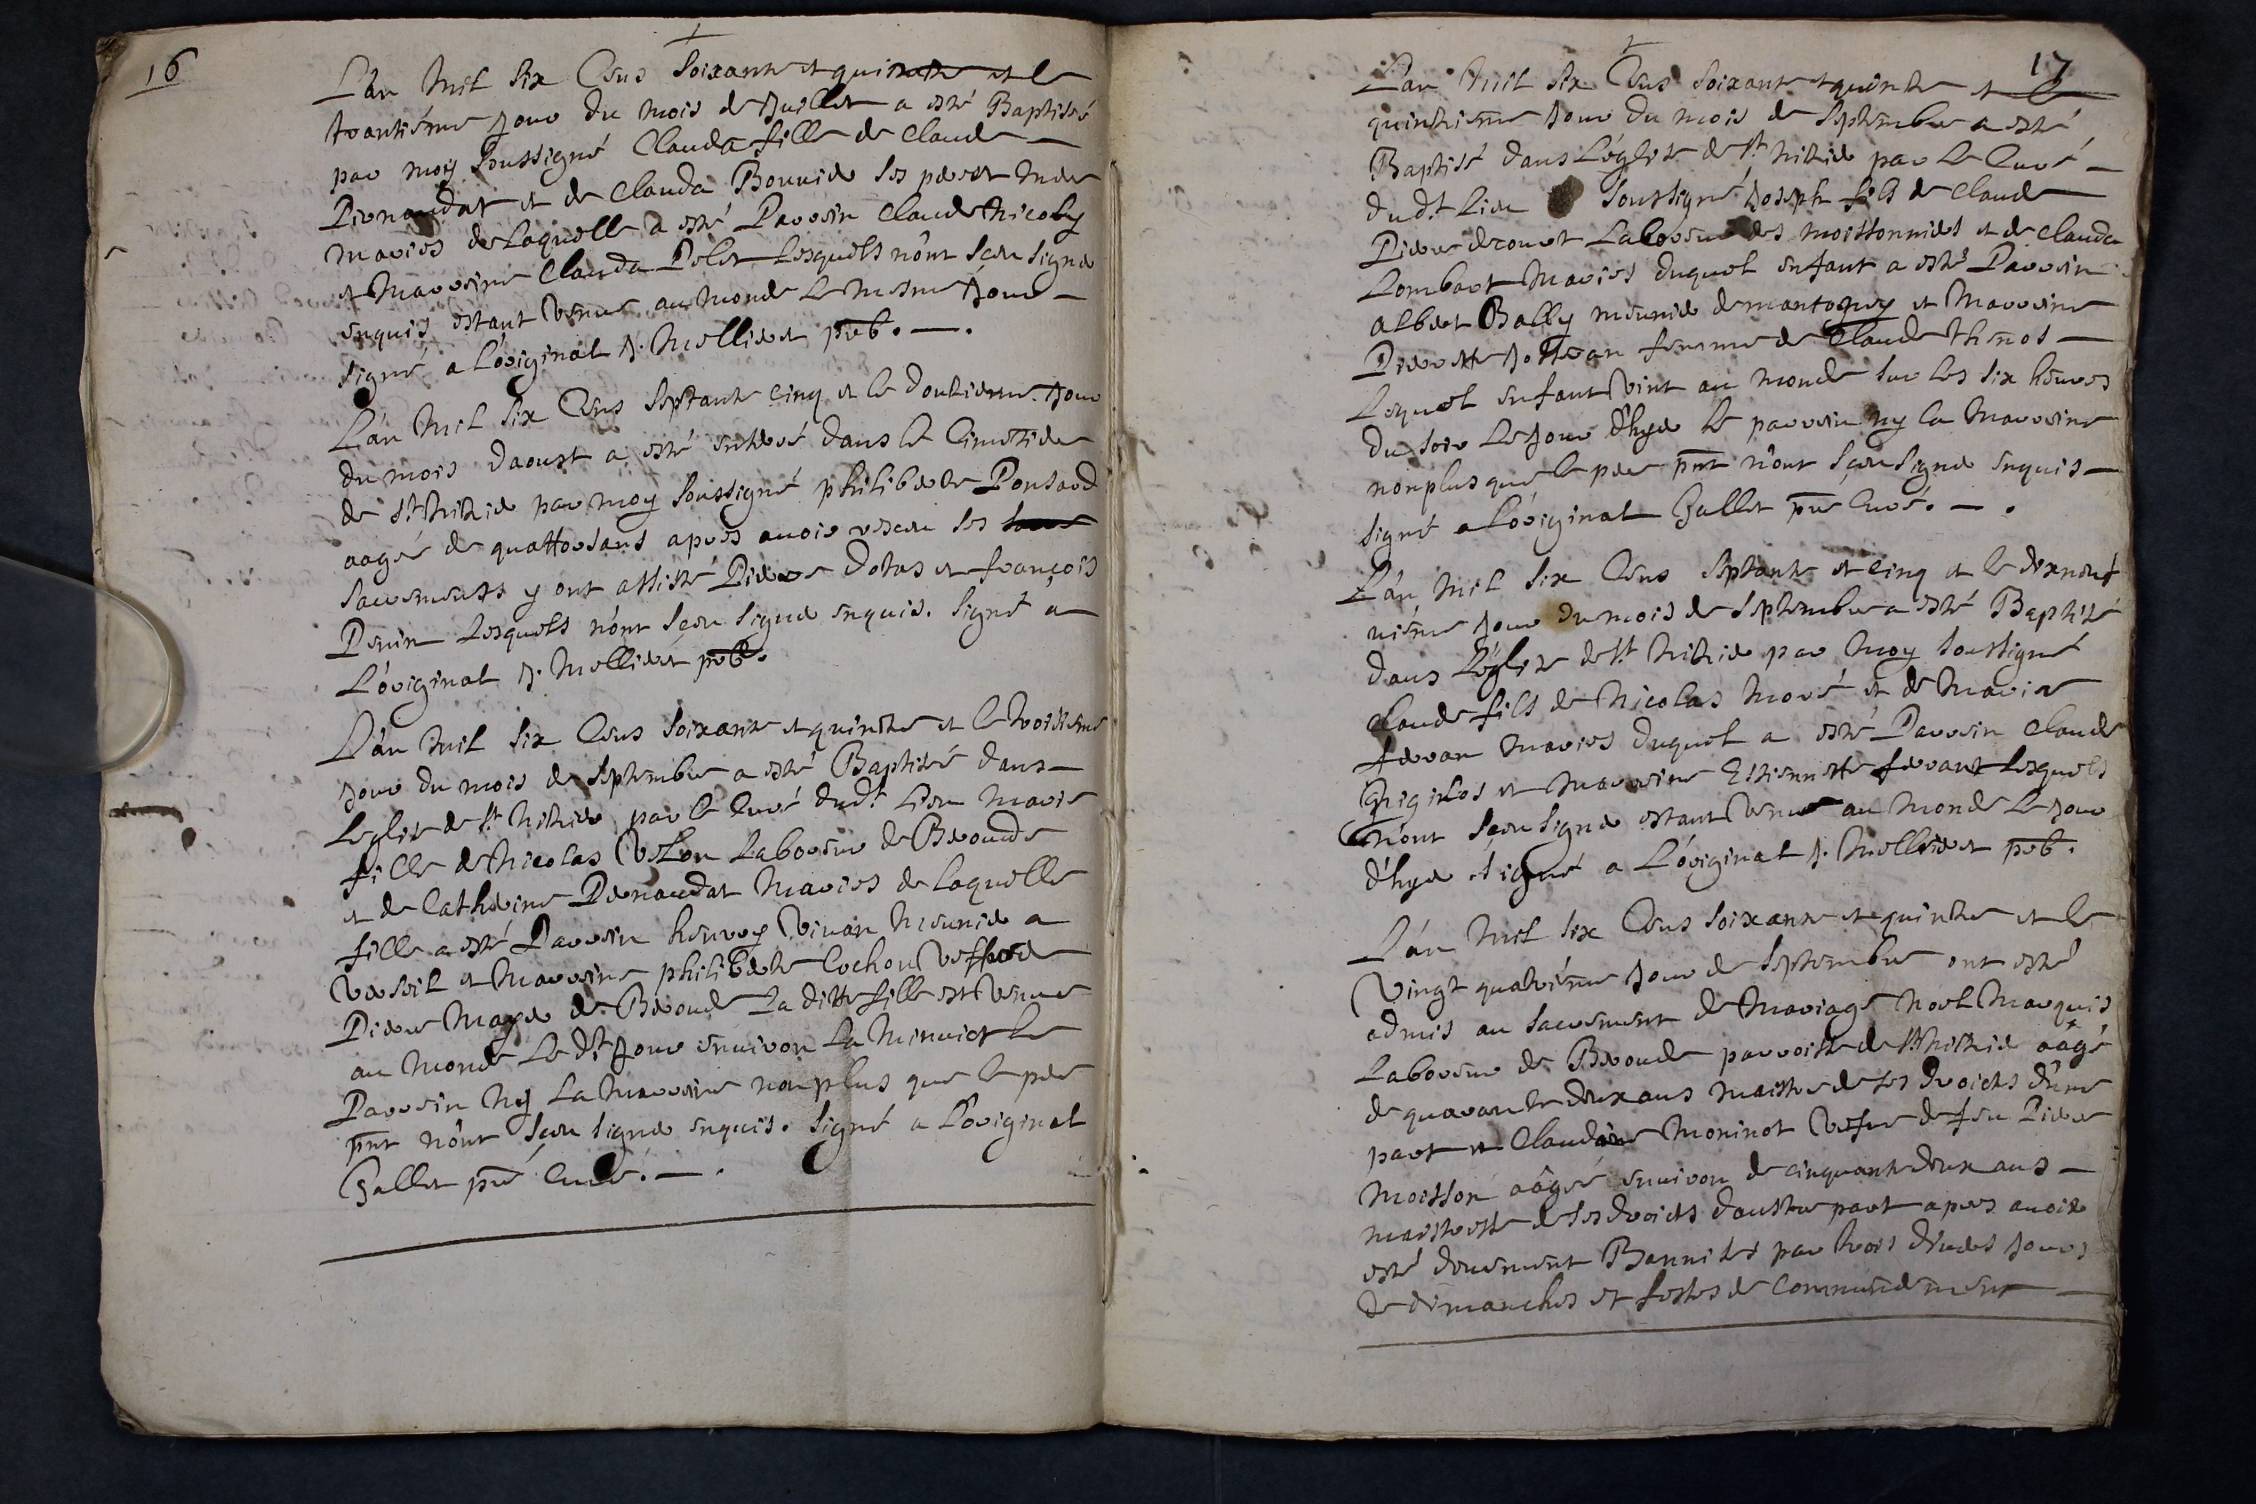 16
L'an mil six Cens soixante et quinze et le
trantiéme jour du mois de juillet a esté Baptisée
par moy soussigné Clauda fille de Claude
Pernaudat et de Clauda Bouvier ses pere et mere
mariés de laquelle a esté Parrein Claude Nicoly
et Marreine Clauda Pelet lesquels n'ont sçeu signer
enquis estant venue au monde le mesme jour
signé a l'original J. Mellieret pbr.
L'an mil six Cens septante cinq et le douzieme jour
du mois d'aoust a esté enterré dans le Cimetier
de st Nizier par moy soussigné philiberte Ponsard
aagée de quattorsans apres avoir reseu ses
sacrements y ont assisté Pierre Dotas et françois
Perrin lesquels n'ont sçeu signer enquis. signé a
l'original J. Mellieret pbr.
L'an mil six Cens soixante et quinze et le troisieme
jour du mois de septembre a esté Baptisée dans
l'eglise de st Nizier par le Curé dudt lieu Marie
fille de Nicolas Velon laboureur de Broude
et de Catherine Pernaudat mariés de laquelle
fille a esté Parrein henry Vivan meunier a
Verseil et Marreine philiberte Cochon veffve de
Pierre Mayer de Broude la ditte fille est venue
au monde le dt jour environ la minuict le
Parrein ny la Marreine non plus que le pere
pnt n'ont sçeu signer enquis. signé a l'original
Gallet pre Curé.
17
L'an mil six Cens soixante et quinze et le
quinzieme jour du mois de septembre a esté
Baptisé dans l'église de st Nizier par le Curé
dudt lieu soussigné joseph fils de Claude
Pierre decouet laboureur des moissonniers et de Clauda
Lombart mariés duquel enfant a esté Parrein
albert Bally meunier de mantogny et Marreine
Pierrette femme de Claude Thenos
lequel enfant vint au monde sur les six heures
du soir le jour d'hyer le parrein ny la Marreine
non plus que le pere pnt n'ont sçeu signer enquis
signé a l'original Gallet pre Curé.
L'an mil six Cens septante et cinq et le dixneuf
viéme jour du mois de septembre a esté Baptizé
dans l'église de st Nizier par moy soussigné
Claude fils de Nicolas Moré et de Marie
ferran mariés duquel a esté Parrein Claude
et Marreine Estiennette ferrant lesquels
n'ont sçeu signer estant venu au monde le jour
d'hyer signé a l'original J. Mellieret pbr.
L'an mil six Cens soixante et quinze et le
vingt quatriéme jour de septembre ont esté
admis au sacrement de Mariage Noel Marquis
laboureur de Broude parroisse de st Nizier aâgé
de quarante deux ans maistre de ses droicts d'une
part et Claudine Moninot vefve de feu Pierre
Moisson aâgée environ de cinquante deux ans
maistresse de ses droicts d'aultre part apres avoir
esté deuement Bannisés par trois divers jours
de dimanches et festes de commendement